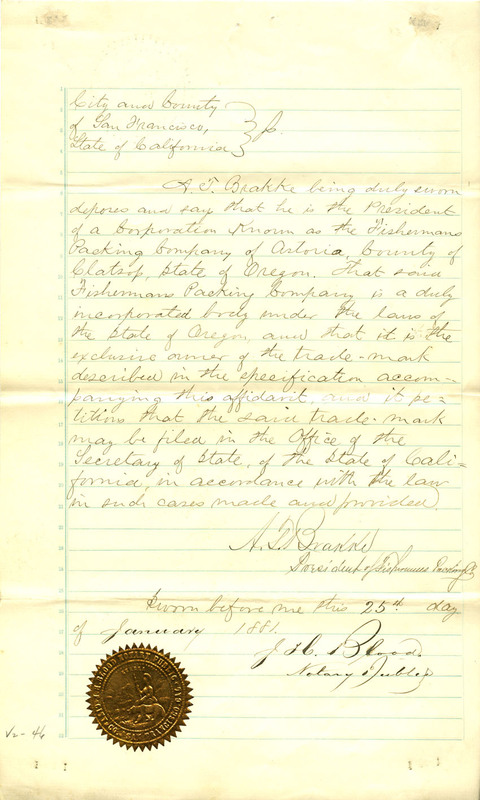 City and County
of San Francisco,
State of California
A. T. Brakke being duly sworn
deposes and says that he is the President
of a Corporation Known as the Fishermans
Packing Company of Astoria, County of
Clatsop, State of Oregon. That said
Fishermans Packing Company is a duly
incorporated body under the laws of
the State of Oregon, and that it is the
exclusive owner of the trade-mark
described in the specification accom-
panying this affidavit, and it pe-
titions that the said trade-mark
may be filed in the Office of the
Secretary of State, of the State of Cali-
fornia, in accordance with the law
in such cases made and provided.
A. T. Brakke
President of Fishermans Packing Co
Sworn before me this 25th day
of January 1881.
J. H. Blood
Notary Public
V2-46